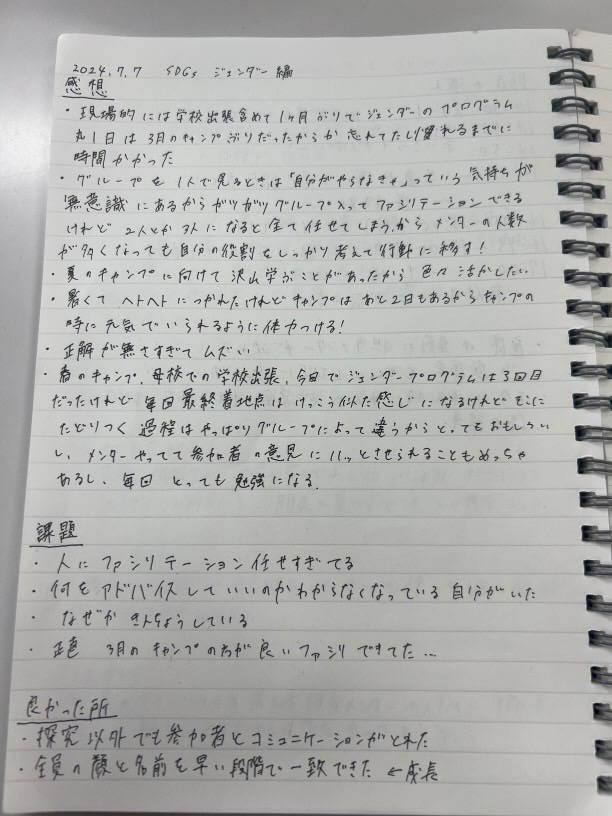 2024.7.7 SDGs ジェンダー編
感想
・現場的には学校出張含めて1ヶ月ぶりでジェンダーのプログラム
丸1日は3月のキャンプぶりだったからか忘れてたし慣れるまでに
時間かかった
・グループを1人で見るときは「自分がやらなきゃ」っていう気持ちが
無意識にあるからガツガツグループ入ってファシリテーションできる
けれど2人とか3人になると全て任せてしまうからメンターの人数
が多くなっても自分の役割をしっかり考えて行動に移す!
・夏のキャンプに向けて沢山学ぶことがあったから色々活かしたい
・暑くてヘトヘトにつかれたけれどキャンプはあと2日もあるからキャンプの
時に元気でいられるように体力つける!
・正解が無さすぎてムズい
・春のキャンプ、母校での学校出張、今日でジェンダープログラムは3回目
だったけれど毎回最終着地点はけっこう似た感じになるけれどそこに
たどりつく過程はやっぱりグループによって違うからとってもおもしろい
し、メンターやってて参加者の意見にハッとさせられることもめっちゃ
あるし、毎回とっても勉強になる。
課題
・人にファシリテーション任せすぎてる
・何をアドバイスしていいのかわからなくなっている自分がいた
・なぜかきんちょうしている
・正直3月のキャンプの方が良いファシリできてた…
良かった所
・探究以外でも参加者とコミュニケーションがとれた
・全員の顔と名前を早い段階で一致できた ←成長